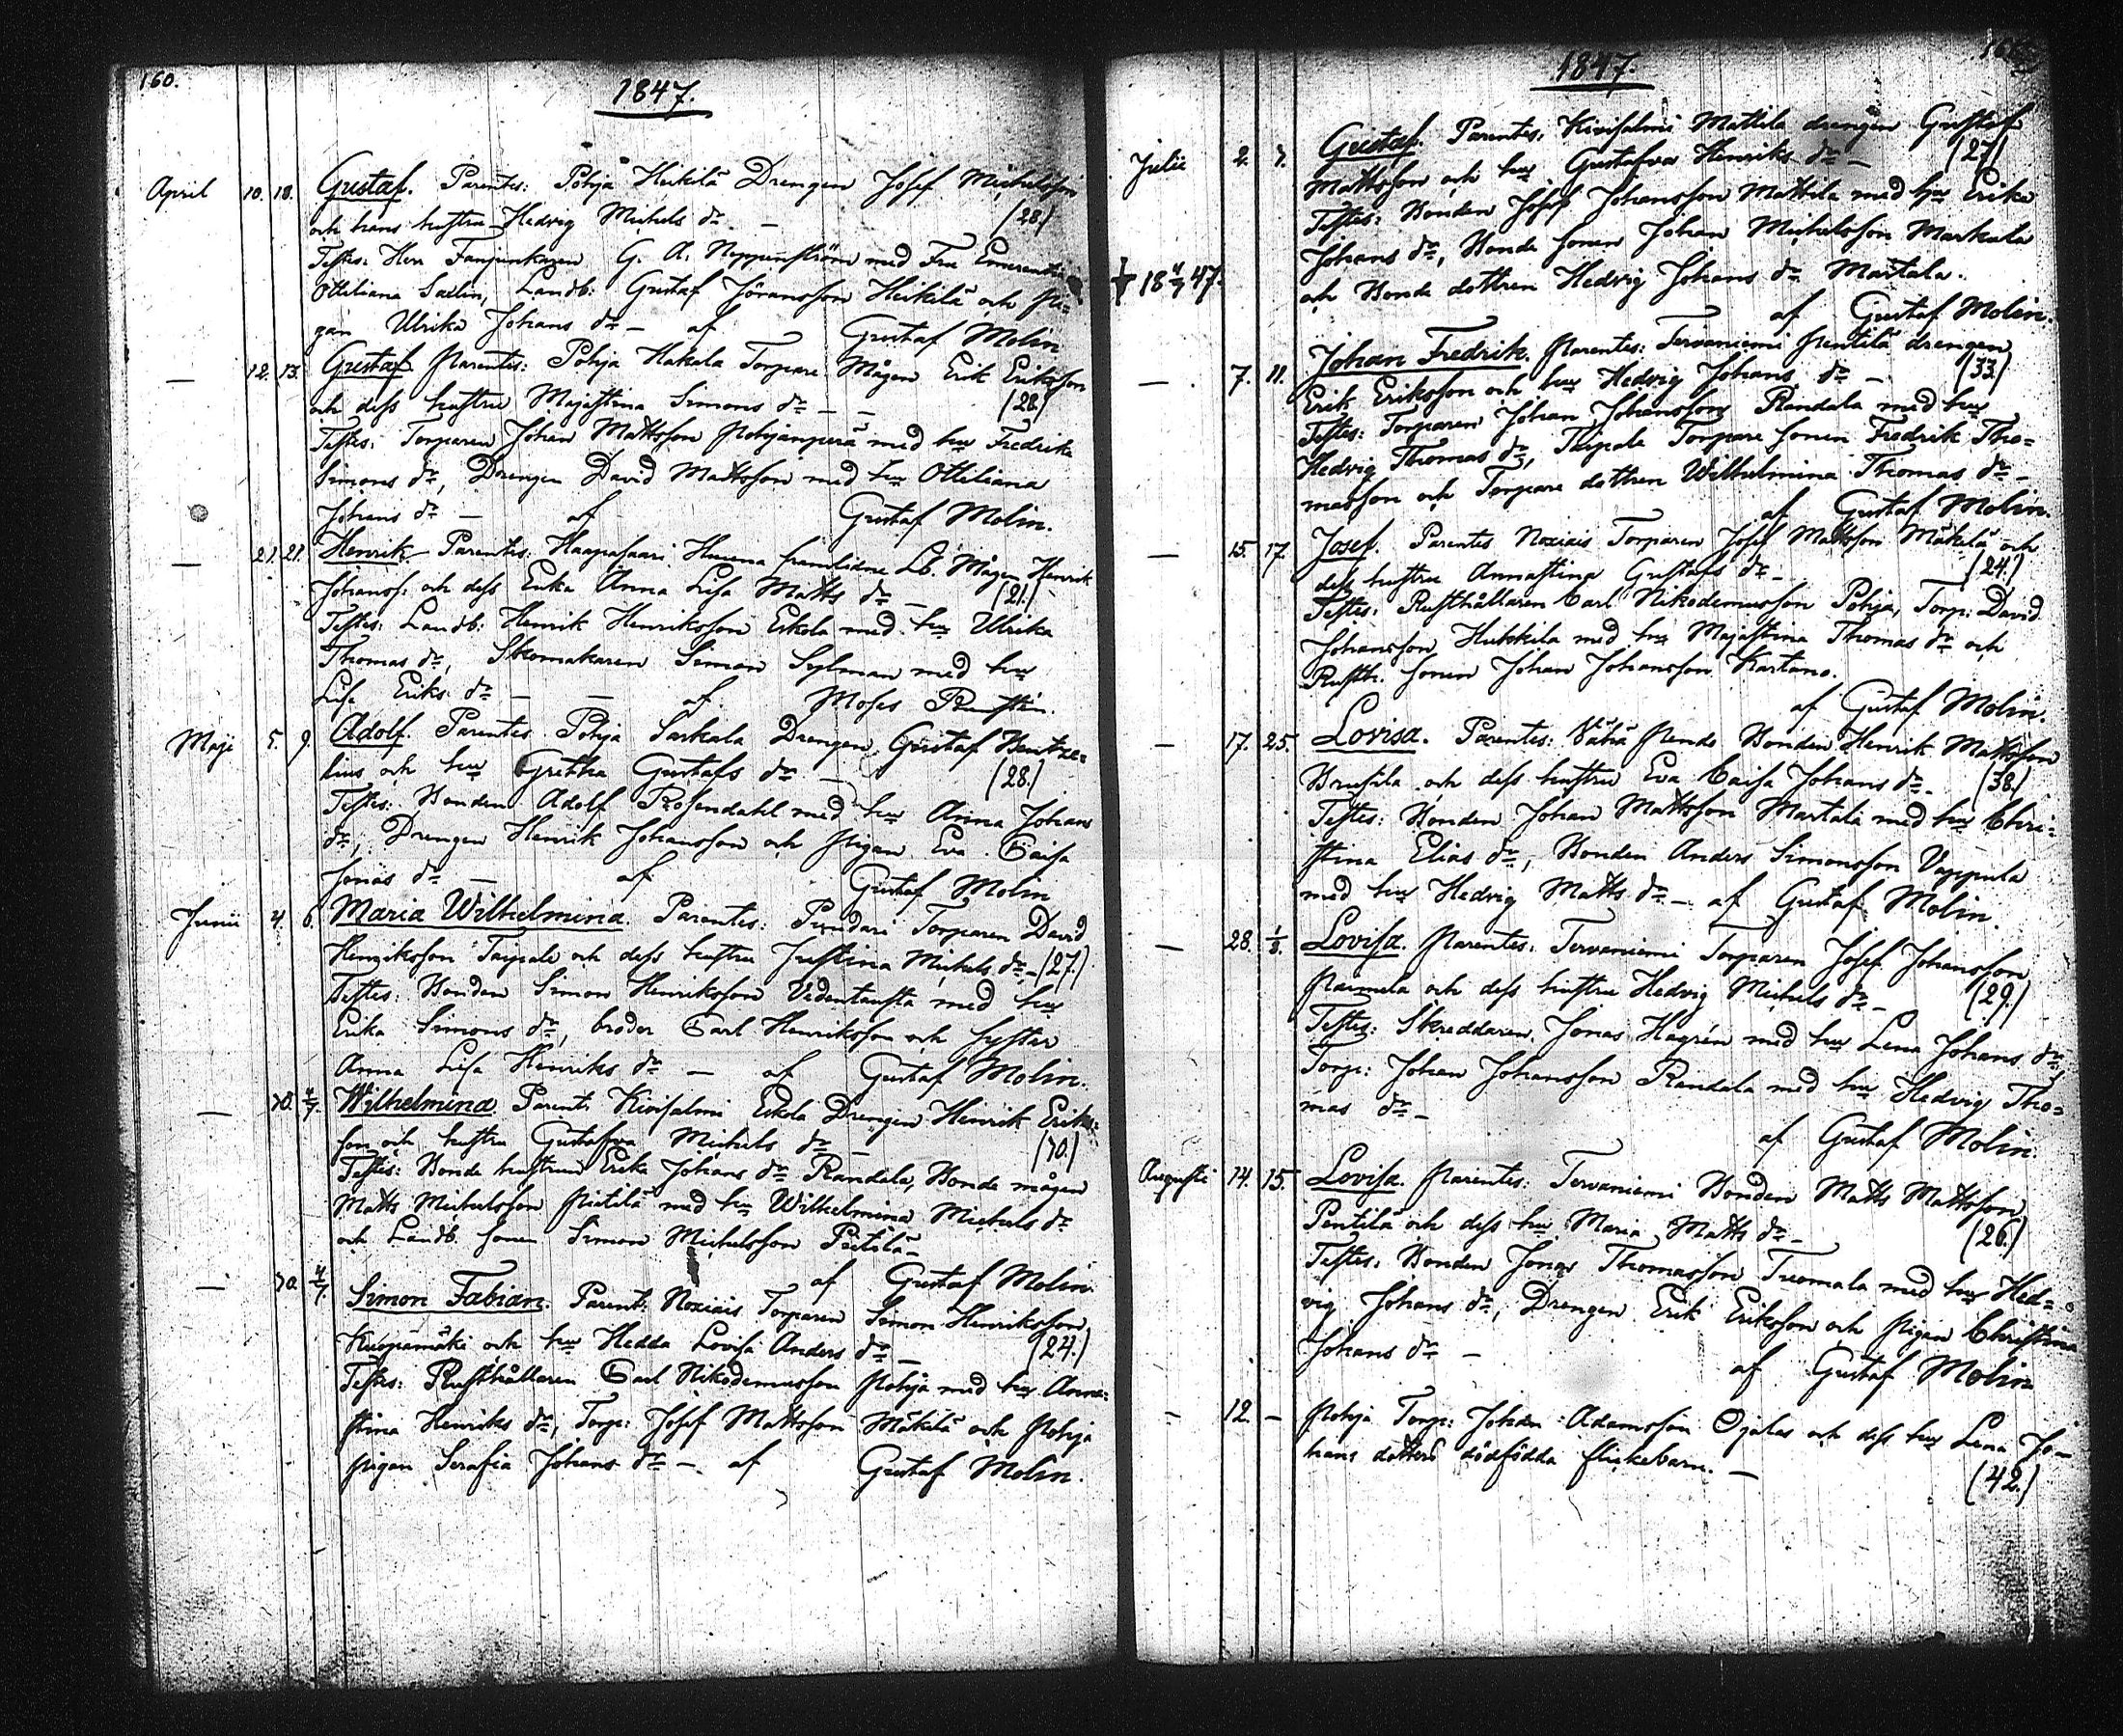 160.
1847.
April 10. 18. Gustaf. Parentes: Pohja Heikilä Drengen Josef Michelsson
och hans hustru Hedvig Michels dr — (28.)
Testes: Herr Fanjunkaren G. A. Neppenström med Fru Emerentia
Ottiliana Salin, Landb: Gustaf Göransson Heikilä och pi-
gan Ulrika Johans dr — af Gustaf Molin
— 12. 13. Gustaf. Parentes: Pohja Hakala Torpare Mågen Erik Eriksson
och dess hustru Majastina Simons dr — — (28.)
Testes: Torparen Johan Mattsson Pohjanperä med hu Fredrika
Simons dr, Drengen David Mattsson med hu Ottiliana
Johans dr — af Gustaf Molin.
— 21. 21. Henrik. Parentes: Haapasaari framlidne Lb. Mågen Henrik
Johanss: och dess Enka Anna Lisa Matts dr — (21.)
Testes: Landb: Henrik Henriksson Eskola med hu Ulrika
Thomas dr, Skomakaren Simon Sylman med hu
Lisa Eriks dr — — af Moses
Maji 5. 9. Adolf. Parentes Pohja Sarkala Drengen Gustaf Bentze-
lius och hu Gretha Gustafs dr — (28.)
Testes: Bonden Adolf Rosendahl med hu Anna Johans
dr, Drengen Henrik Johansson och pigan Eva Caisa
Jonas dr — af Gustaf Molin
Junii 4. 6. Maria Wilhelmina. Parentes: Pundari Torparen David
Henriksson Taipale och dess hustru Justina Michels dr — (27.)
Testes: Bonden Simon Henriksson Vedentausta med hu
Erika Simons dr, broder Carl Henriksson och syster
Anna Lisa Henriks dr — af Gustaf Molin.
— 30. 4/7. Wilhelmina Parent: Kivisalmi Eskola Drengen Henrik Eriks-
son och hustru Gustafva Michels dr — (30.)
Testes: Bonde hustrun Erika Johans dr Randala, Bonde mågen
Matts Michelsson Pietilä med hu Wilhelmina Michels dr
och Landb. sonen Simon Michelsson Pietilä —
af Gustaf Molin.
— 30. 4/7. Simon Fabian. Parent: Noxiais Torparen Simon Henriksson
Kuopamäki och hu Hedda Lovisa Anders dr — (24.)
Testes: Rusthållaren Carl Nikodemusson Pohja med hu Anna-
stina Henriks dr, Torp: Josef Mattsson Mäkilä och Pohja
pigan Serafia Johans dr — af Gustaf Molin.
1847.
Julii 2. 3. Gustaf. Parentes: Kivisalmi Mattila drengen Gustaf
Mattsson och hu Gustafva Henriks dr — (27.)
Testes: Bonden Josef Johansson Mattila med hu Erika
Johans dr, Bonde sonen Johan Michelsson Markula
† 18 4/7 47. och Bonde dottren Hedvig Johans dr Martala.
af Gustaf Molin.
— 7. 11. Johan Fredrik. Parentes: Tervaniemi Pentilä drengen
Erik Eriksson och hu Hedvig Johans dr — (33.)
Testes: Torparen Johan Johansson Randala med hu
Hedvig Thomas dr, Taipale Torpare sonen Fredrik Tho-
masson och Torpare dottren Wilhelmina Thomas dr —
af Gustaf Molin.
— 15. 17. Josef. Parentes Noxiais Torparen Josef Mattsson Mäkilä och
dess hustru Annastina Gustafs dr — (24.)
Testes: Rusthållaren Carl Nikodemusson Pohja, Torp: David
Johansson Hukkila med hu Majastina Thomas dr och
Rusth. sonen Johan Johansson Kartano.
af Gustaf Molin.
— 17. 25. Lovisa. Parentes: Vähä Pendo Bonden Henrik Mattsson
Brusila och dess hustru Eva Caisa Johans dr — (38.)
Testes: Bonden Johan Mattsson Martala med hu Chri-
stina Elias dr, Bonden Anders Simonsson Vappula
med hu Hedvig Matts dr — af Gustaf Molin
— 28. 1/8. Lovisa. Parentes: Tervaniemi Torparen Josef Johansson
Paimela och dess hustru Hedvig Michels dr — (29.)
Testes: Skreddaren Jonas Hagrén med hu Lena Johans dr,
Torp: Johan Johansson Randala med hu Hedvig Tho-
mas dr —
af Gustaf Molin.
Augusti 14. 15. Lovisa. Parentes: Tervaniemi Bonden Matts Mattsson
Pentilä och dess hu Maria Matts dr — (26.)
Testes: Bonden Jonas Thomasson Tuomala med hu Hed-
vig Johans dr, Drengen Erik Eriksson och pigan Christina
Johans dr —
af Gustaf Molin
— 12. — Pohja Torp: Johan Adamsson Ojalas och dess hu Lena Jo-
hans dotters dödfödda flickebarn. — (42.)